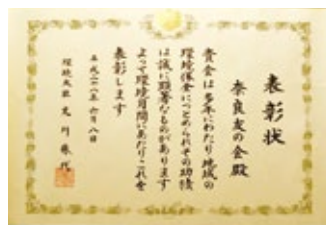 表彰状
奈良友の会殿
貴会は多年にわたり地域の
環境保全につとめられその功績
は誠に顕著なものがあります
よって環境月間にあたりこれを
表彰します
平成二十八年六月八日
環境大臣 丸川珠代